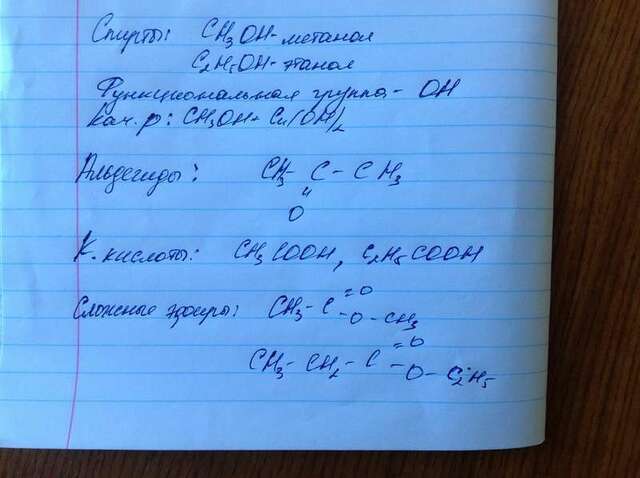 Спирты: CH3OH - метанол
C2H5OH - этанол
Функциональная группа - OH
Кач. р: CH3OH + Cu(OH)2
Альдегиды: CH3 - C - CH3
"
O
К. кислоты: CH3COOH, C2H5COOH
Сложные эфиры: CH3 - C =O
- O - CH3
CH3 - CH2 - C =O
- O - C2H5